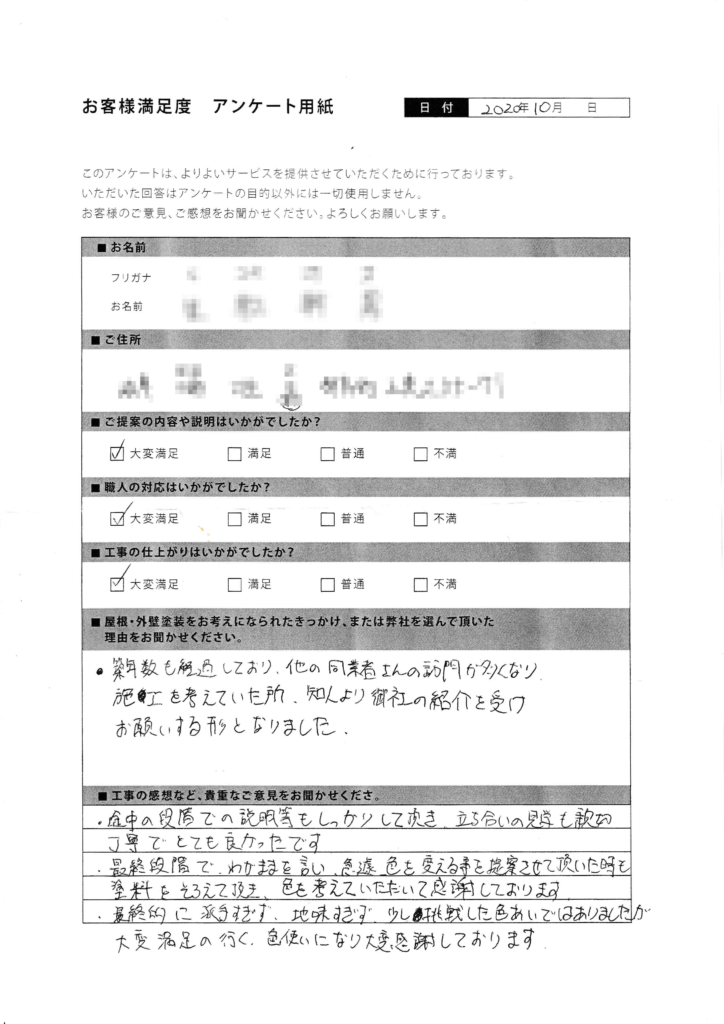 お客様満足度 アンケート用紙
日付 2020年10月 日
このアンケートは、よりよいサービスを提供させていただくために行っております。
いただいた回答はアンケートの目的以外には一切使用しません。
お客様のご意見、ご感想をお聞かせください。よろしくお願いします。
■お名前
フリガナ
お名前
■ご住所
■ご提案の内容や説明はいかがでしたか?
☑大変満足 □満足 □普通 □不満
■職人の対応はいかがでしたか?
☑大変満足 □満足 □普通 □不満
■工事の仕上がりはいかがでしたか?
☑大変満足 □満足 □普通 □不満
■屋根・外壁塗装をお考えになられたきっかけ、または弊社を選んで頂いた
理由をお聞かせください。
・築年数も経過しており、他の同業者さんの訪問が多くなり
施工を考えていた所、知人より御社の紹介を受け
お願いする形となりました.
■工事の感想など、貴重なご意見をお聞かせくださ。
・途中の段階での説明等もしっかりして頂き、立ち合いの見学も
丁寧でとても良かったです
・最終段階で、わがままを言い、急遽色を変える事を提案させて頂いた時も
塗料をそろえて頂き、色を考えていただいて感謝しております
・最終的に派手すぎず、地味すぎず、少し挑戦した色あいではありましたが
大変満足の行く、色使いになり大変感謝しております